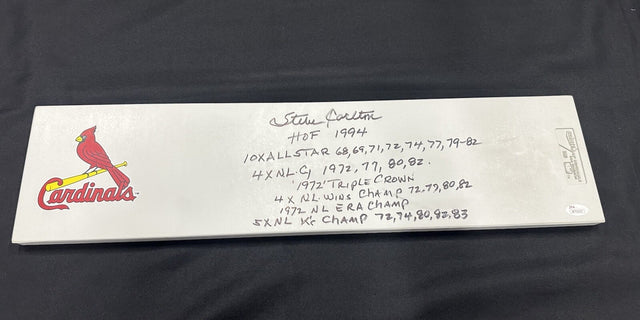 Cardinals
Steve Carlton
HOF 1994
10XALLSTAR 68,69,71,72,74,77,79-82
4XNL.Cy 1972, 77, 80,82.
1972 TRIPLE CROWN
4 X NL WINS CHAMP 72,77,80,82
1972 NL ERA CHAMP
5XNL K's CHAMP 72,74,80,82,83